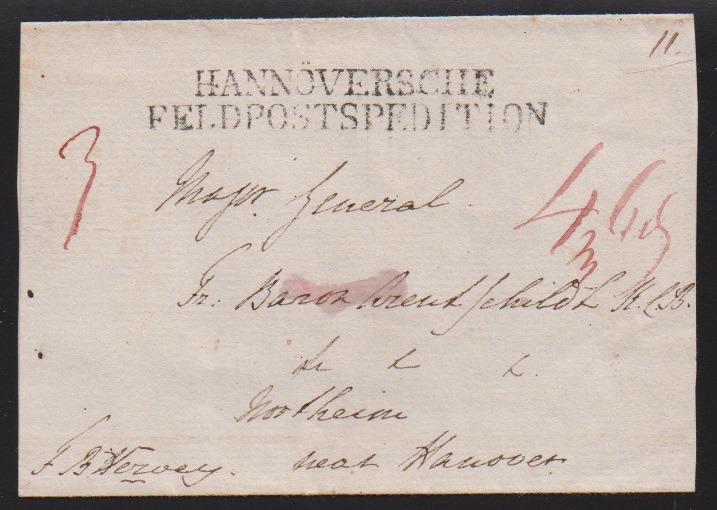 11.
HANNÖVERSCHE
FELDPOSTSPEDITION
3
Major General
4
3
Fr: Baron Arentsschildt K.C.B.
&c & &
Northeim
F B Hervey. near Hanover